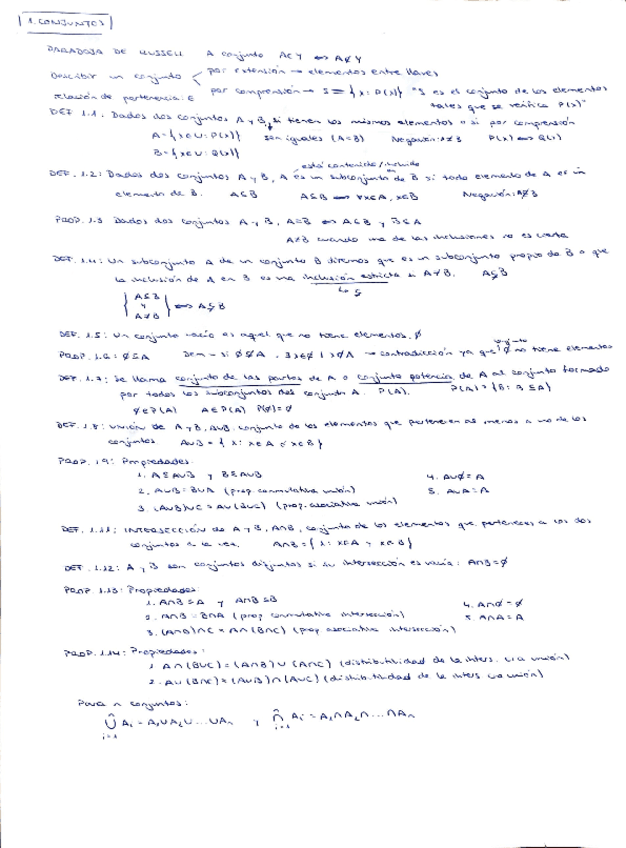 1. CONJUNTOS
PARADOJA DE RUSSELL A conjunto A∈Y ⇔ A∉Y
Describir un conjunto < por extensión → elementos entre llaves
por comprensión → S = {x: P(x)} "S es el conjunto de los elementos
relación de pertenencia: ∈ tales que se verifica P(x)"
DEF 1.1. Dados dos conjuntos A y B, si tienen los mismos elementos o si por comprensión
A={x∈U: P(x)} son iguales (A=B) Negación: A≠B P(x) ⇔ Q(x)
B={x∈U: Q(x)}
está contenido / incluido
DEF. 1.2: Dados dos conjuntos A y B, A es un subconjunto de B si todo elemento de A es un
elemento de B. A⊆B A⊆B ⇔ ∀x∈A, x∈B Negación: A⊈B
PROP. 1.3 Dados dos conjuntos A y B, A=B ⇔ A⊆B y B⊆A
A≠B cuando una de las inclusiones no es cierta
DEF. 1.4: Un subconjunto A de un conjunto B diremos que es un subconjunto propio de B o que
la inclusión de A en B es una inclusión estricta si A≠B. A⊊B
↳ ⊊
{ A⊆B y A≠B } ⇔ A⊊B
DEF. 1.5: Un conjunto vacío es aquel que no tiene elementos. ∅
PROP. 1.6: ∅⊆A Dem → si ∅⊈A, ∃x∈∅ | x∉A → contradicción ya que ∅ no tiene elementos
DEF. 1.7: Se llama conjunto de las partes de A o conjunto potencia de A al conjunto formado
por todos los subconjuntos del conjunto A. P(A). P(A) = {B: B⊆A}
∅∈P(A) A∈P(A) P(∅)=∅
DEF. 1.8: Unión de A y B, A∪B, conjunto de los elementos que pertenecen al menos a uno de los
conjuntos A∪B = { x: x∈A ó x∈B}
PROP. 1.9: Propiedades
1. A⊆A∪B y B⊆A∪B 4. A∪∅=A
2. A∪B=B∪A (prop. conmutativa unión) 5. A∪A=A
3. (A∪B)∪C=A∪(B∪C) (prop. asociativa unión)
DEF. 1.11: INTERSECCIÓN de A y B, A∩B, conjunto de los elementos que pertenecen a los dos
conjuntos a la vez. A∩B={x: x∈A y x∈B}
DEF. 1.12: A y B son conjuntos disjuntos si su intersección es vacía: A∩B=∅
PROP 1.13: Propiedades:
1. A∩B⊆A y A∩B⊆B 4. A∩∅=∅
2. A∩B=B∩A (prop conmutativa intersección) 5. A∩A=A
3. (A∩B)∩C=A∩(B∩C) (prop asociativa intersección)
PROP. 1.14: Propiedades:
1. A∩(B∪C)=(A∩B)∪(A∩C) (distributividad de la inters. a la unión)
2. A∪(B∩C)=(A∪B)∩(A∪C) (distributividad de la inters a la unión)
Para n conjuntos:
n∪i=1 Ai = A1∪A2∪...∪An y n∩i=1 Ai = A1∩A2∩...∩An